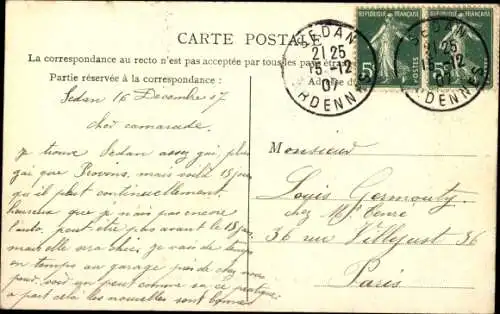 CARTE POSTALE
La correspondance au recto n'est pas acceptée par tous les pays
Partie réservée à la correspondance :
SEDAN
21 25
15-12
07
ARDENNES
REPUBLIQUE FRANÇAISE
POSTES
5
SEDAN
21 25
15-12
07
ARDENNES
REPUBLIQUE FRANÇAISE
POSTES
Sedan 16 Decembre 07
cher camarade.
je trouve Sedan assez gai, plus
gai que Provins, mais voilà 15 jours
qu'il pleut continuellement.
heureux que je n'ais pas encore
l'auto. peut être pas avant le 18 jan
mais elle sera chic, je vais de temps
en temps au garage près de chez nous
pour voir un peu comme sa ce pratique
a part cela les nouvelles sont bonnes
Monsieur
Louis Germouty
chez Mr
36 rue Villejust 36
Paris